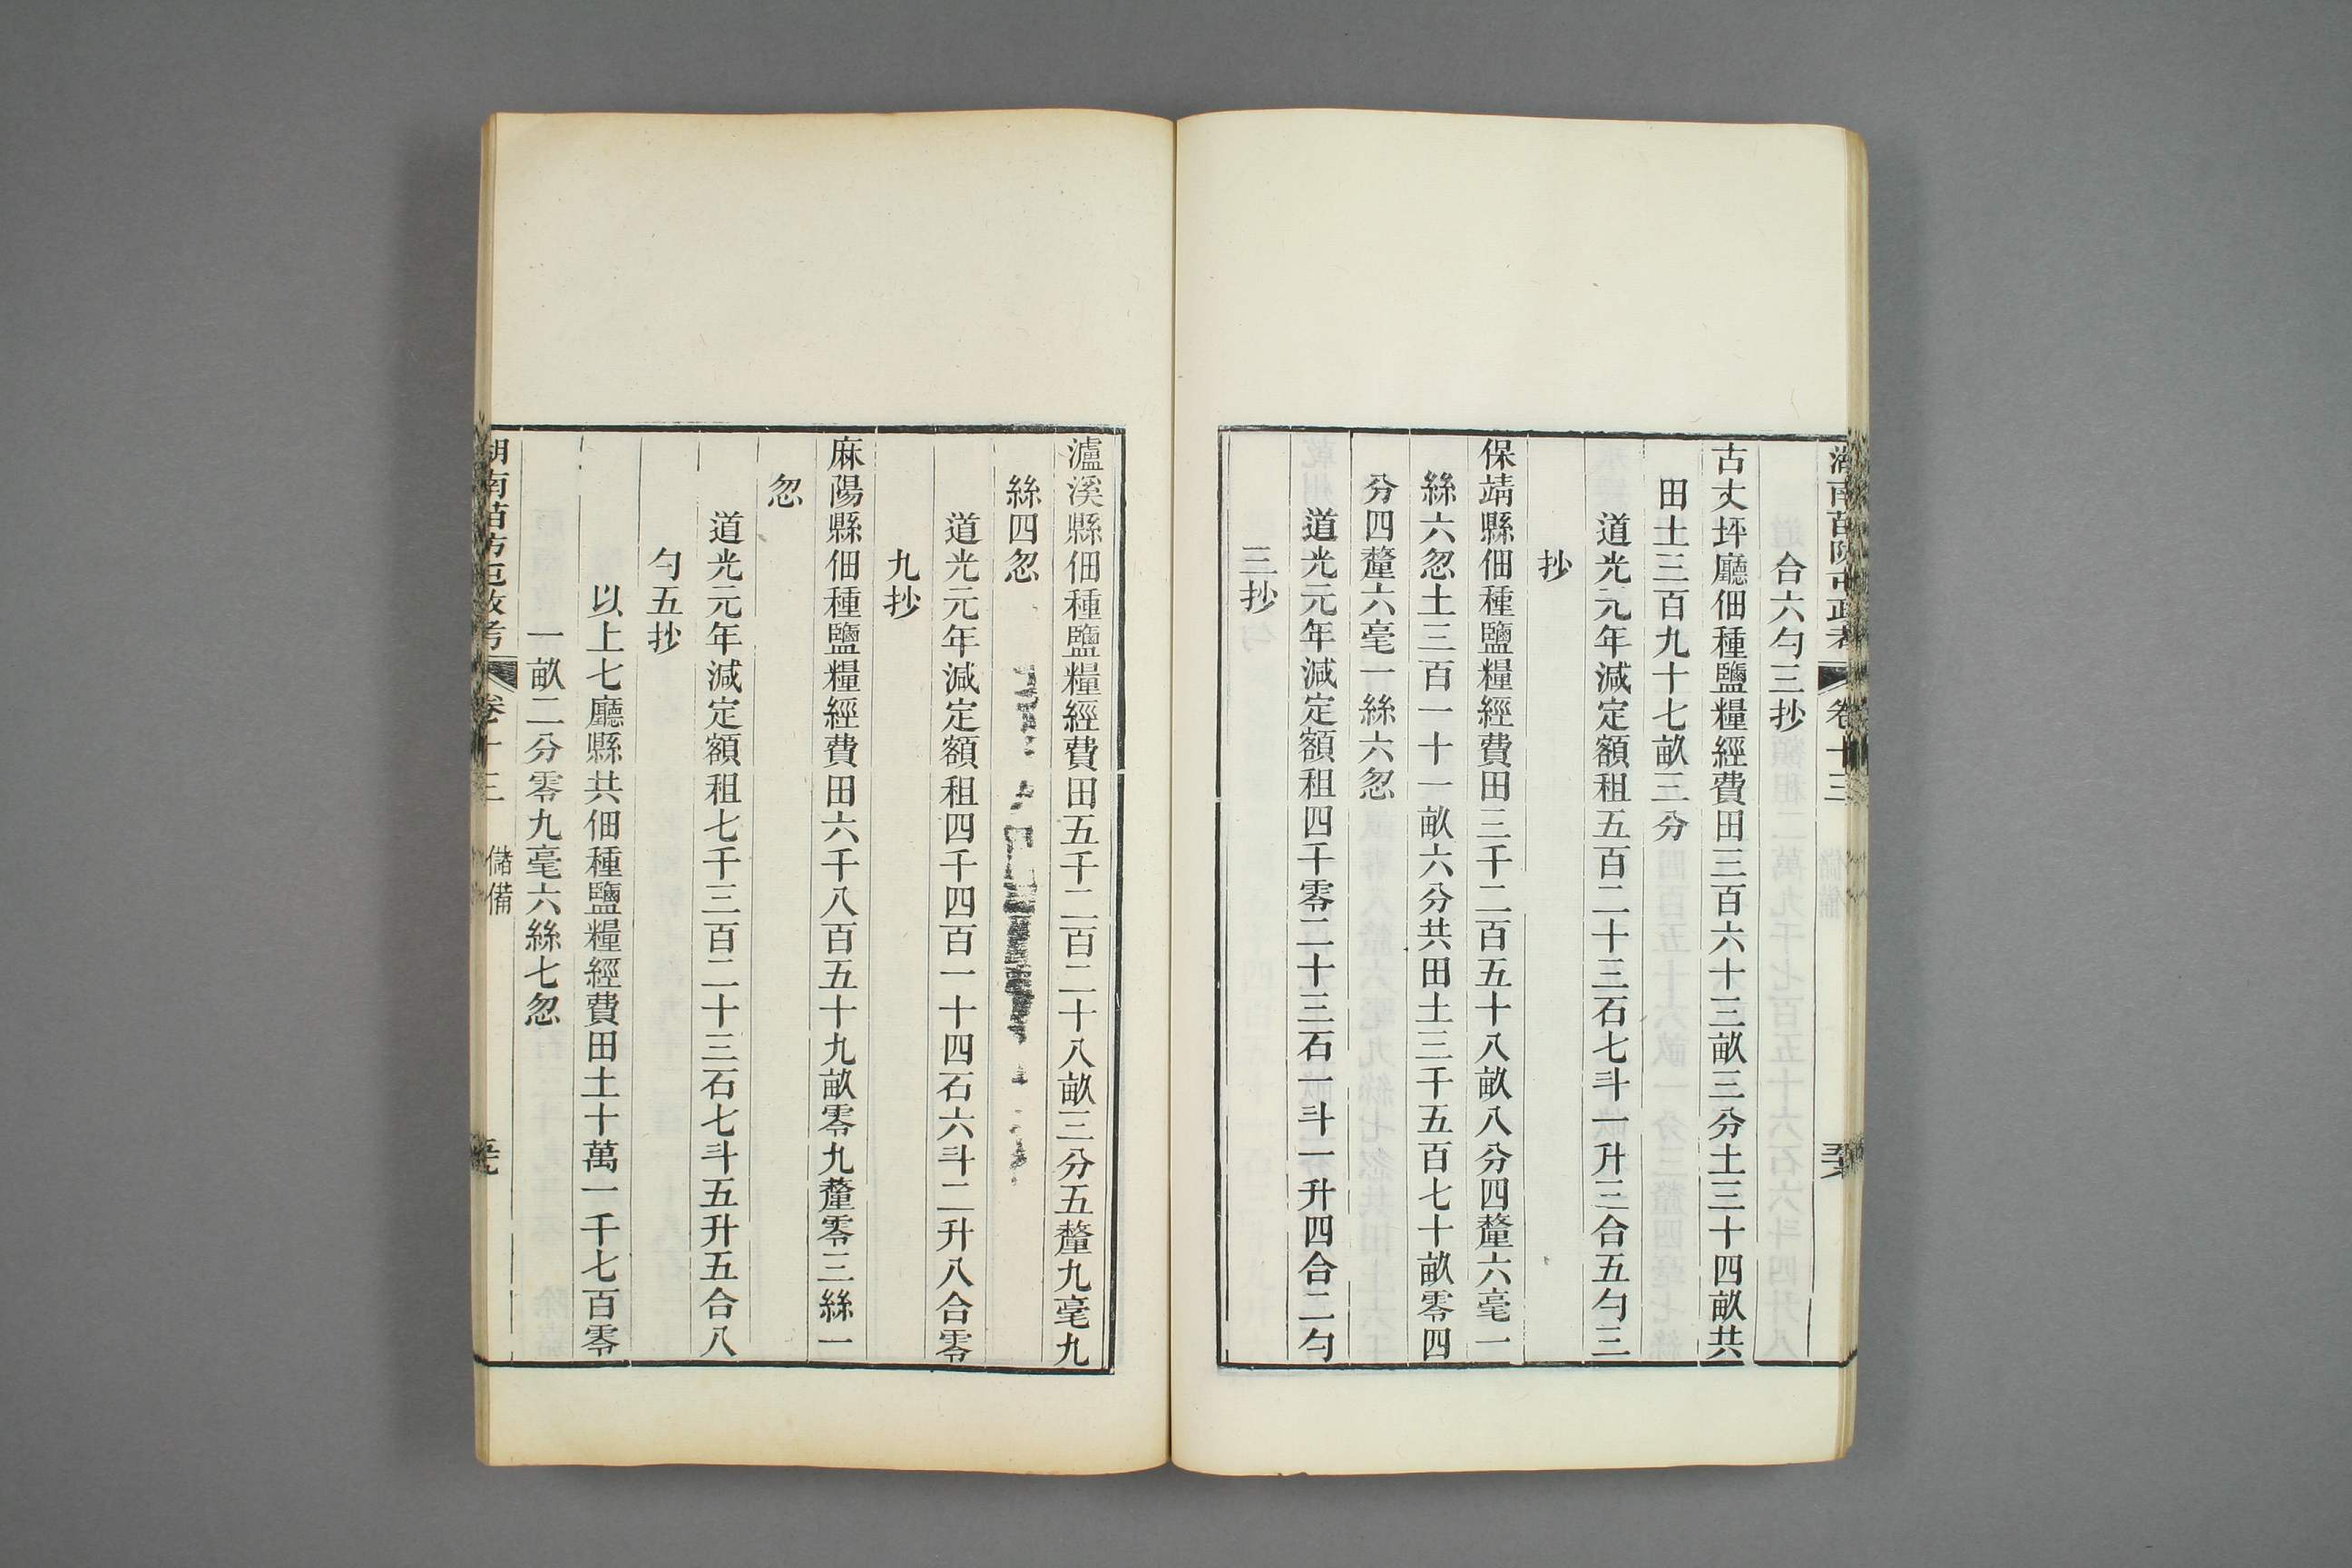 合六勺三抄
古丈坪廳佃種鹽糧經費田三百六十三畝三分土三十四畝共
田土三百九十七畝三分
道光元年減定額租五百二十三石七斗一升三合五勺三
抄
保靖縣佃種鹽糧經費田三千二百五十八畝八分四釐六毫一
絲六忽土三百一十一畝六分共田土三千五百七十畝零四
分四釐六毫一絲六忽
道光元年減定額租四千零二十三石一斗一升四合二勺
三抄
瀘溪縣佃種鹽糧經費田五千二百二十八畝三分五釐九毫九
絲四忽
道光元年減定額租四千四百一十四石六斗二升八合零
九抄
麻陽縣佃種鹽糧經費田六千八百五十九畝零九釐零三絲一
忽
道光元年減定額租七千三百二十三石七斗五升五合八
勺五抄
以上七廳縣共佃種鹽糧經費田土十萬一千七百零
一畝二分零九毫六絲七忽
卷十三 儲備